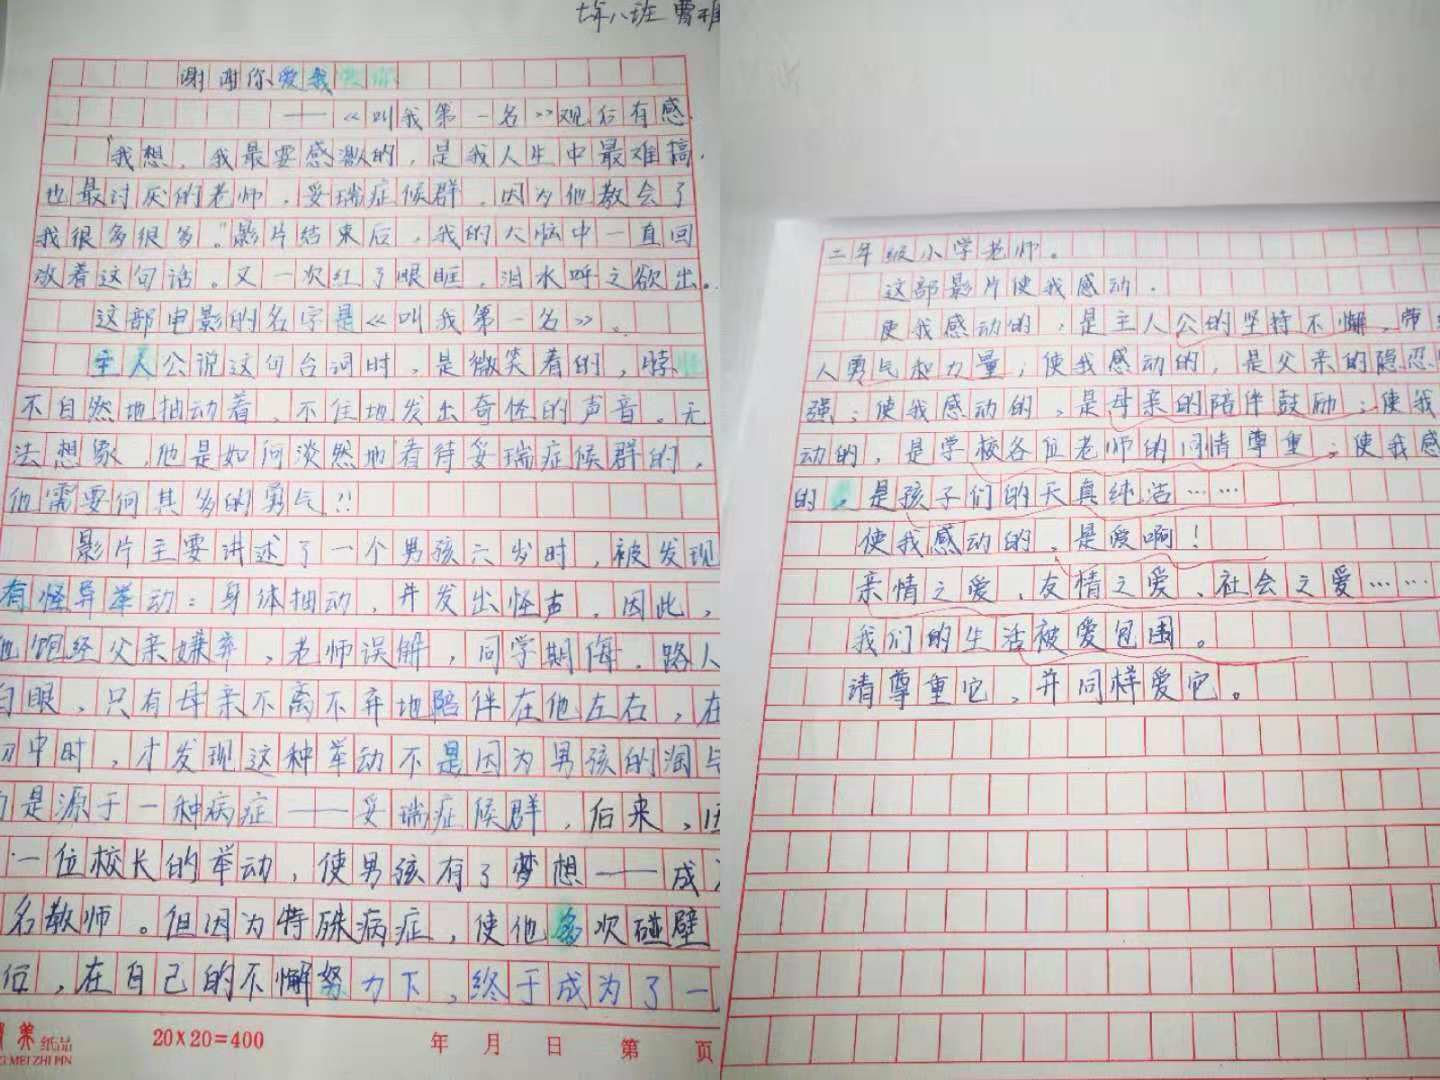 七年八班 曹雅
谢谢你爱我
——《叫我第一名》观后有感
"我想,我最要感激的,是我人生中最难搞,
也最讨厌的老师,妥瑞症候群,因为他教会了
我很多很多。"影片结束后,我的大脑中一直回
放着这句话。又一次红了眼眶,泪水呼之欲出。
这部电影的名字是《叫我第一名》。
主人公说这句台词时,是微笑着的,脖
不自然地抽动着,不住地发出奇怪的声音。无
法想象,他是如何淡然地看待妥瑞症候群的,
他需要何其多的勇气!!
影片主要讲述了一个男孩六岁时,被发现
有怪异举动:身体抽动,并发出怪声,因此,
他饱经父亲嫌弃,老师误解,同学期侮,路人
白眼,只有母亲不离不弃地陪伴在他左右,在
初中时,才发现这种举动不是因为男孩的淘气
是源于一种病症——妥瑞症候群,后来,因
一位校长的举动,使男孩有了梦想——成
名教师。但因为特殊病症,使他多次碰壁
后,在自己的不懈努力下,终于成为了一
纸品
MEI ZHI PIN
20×20=400
年 月 日 第 页
二年级小学老师。
这部影片使我感动.
使我感动的,是主人公的坚持不懈,带
人勇气和力量;使我感动的,是父亲的隐忍
强;使我感动的,是母亲的陪伴鼓励;使我
动的,是学校各位老师的同情尊重;使我感
的,是孩子们的天真纯洁……
使我感动的,是爱啊!
亲情之爱、友情之爱、社会之爱……
我们的生活被爱包围。
请尊重它,并同样爱它。